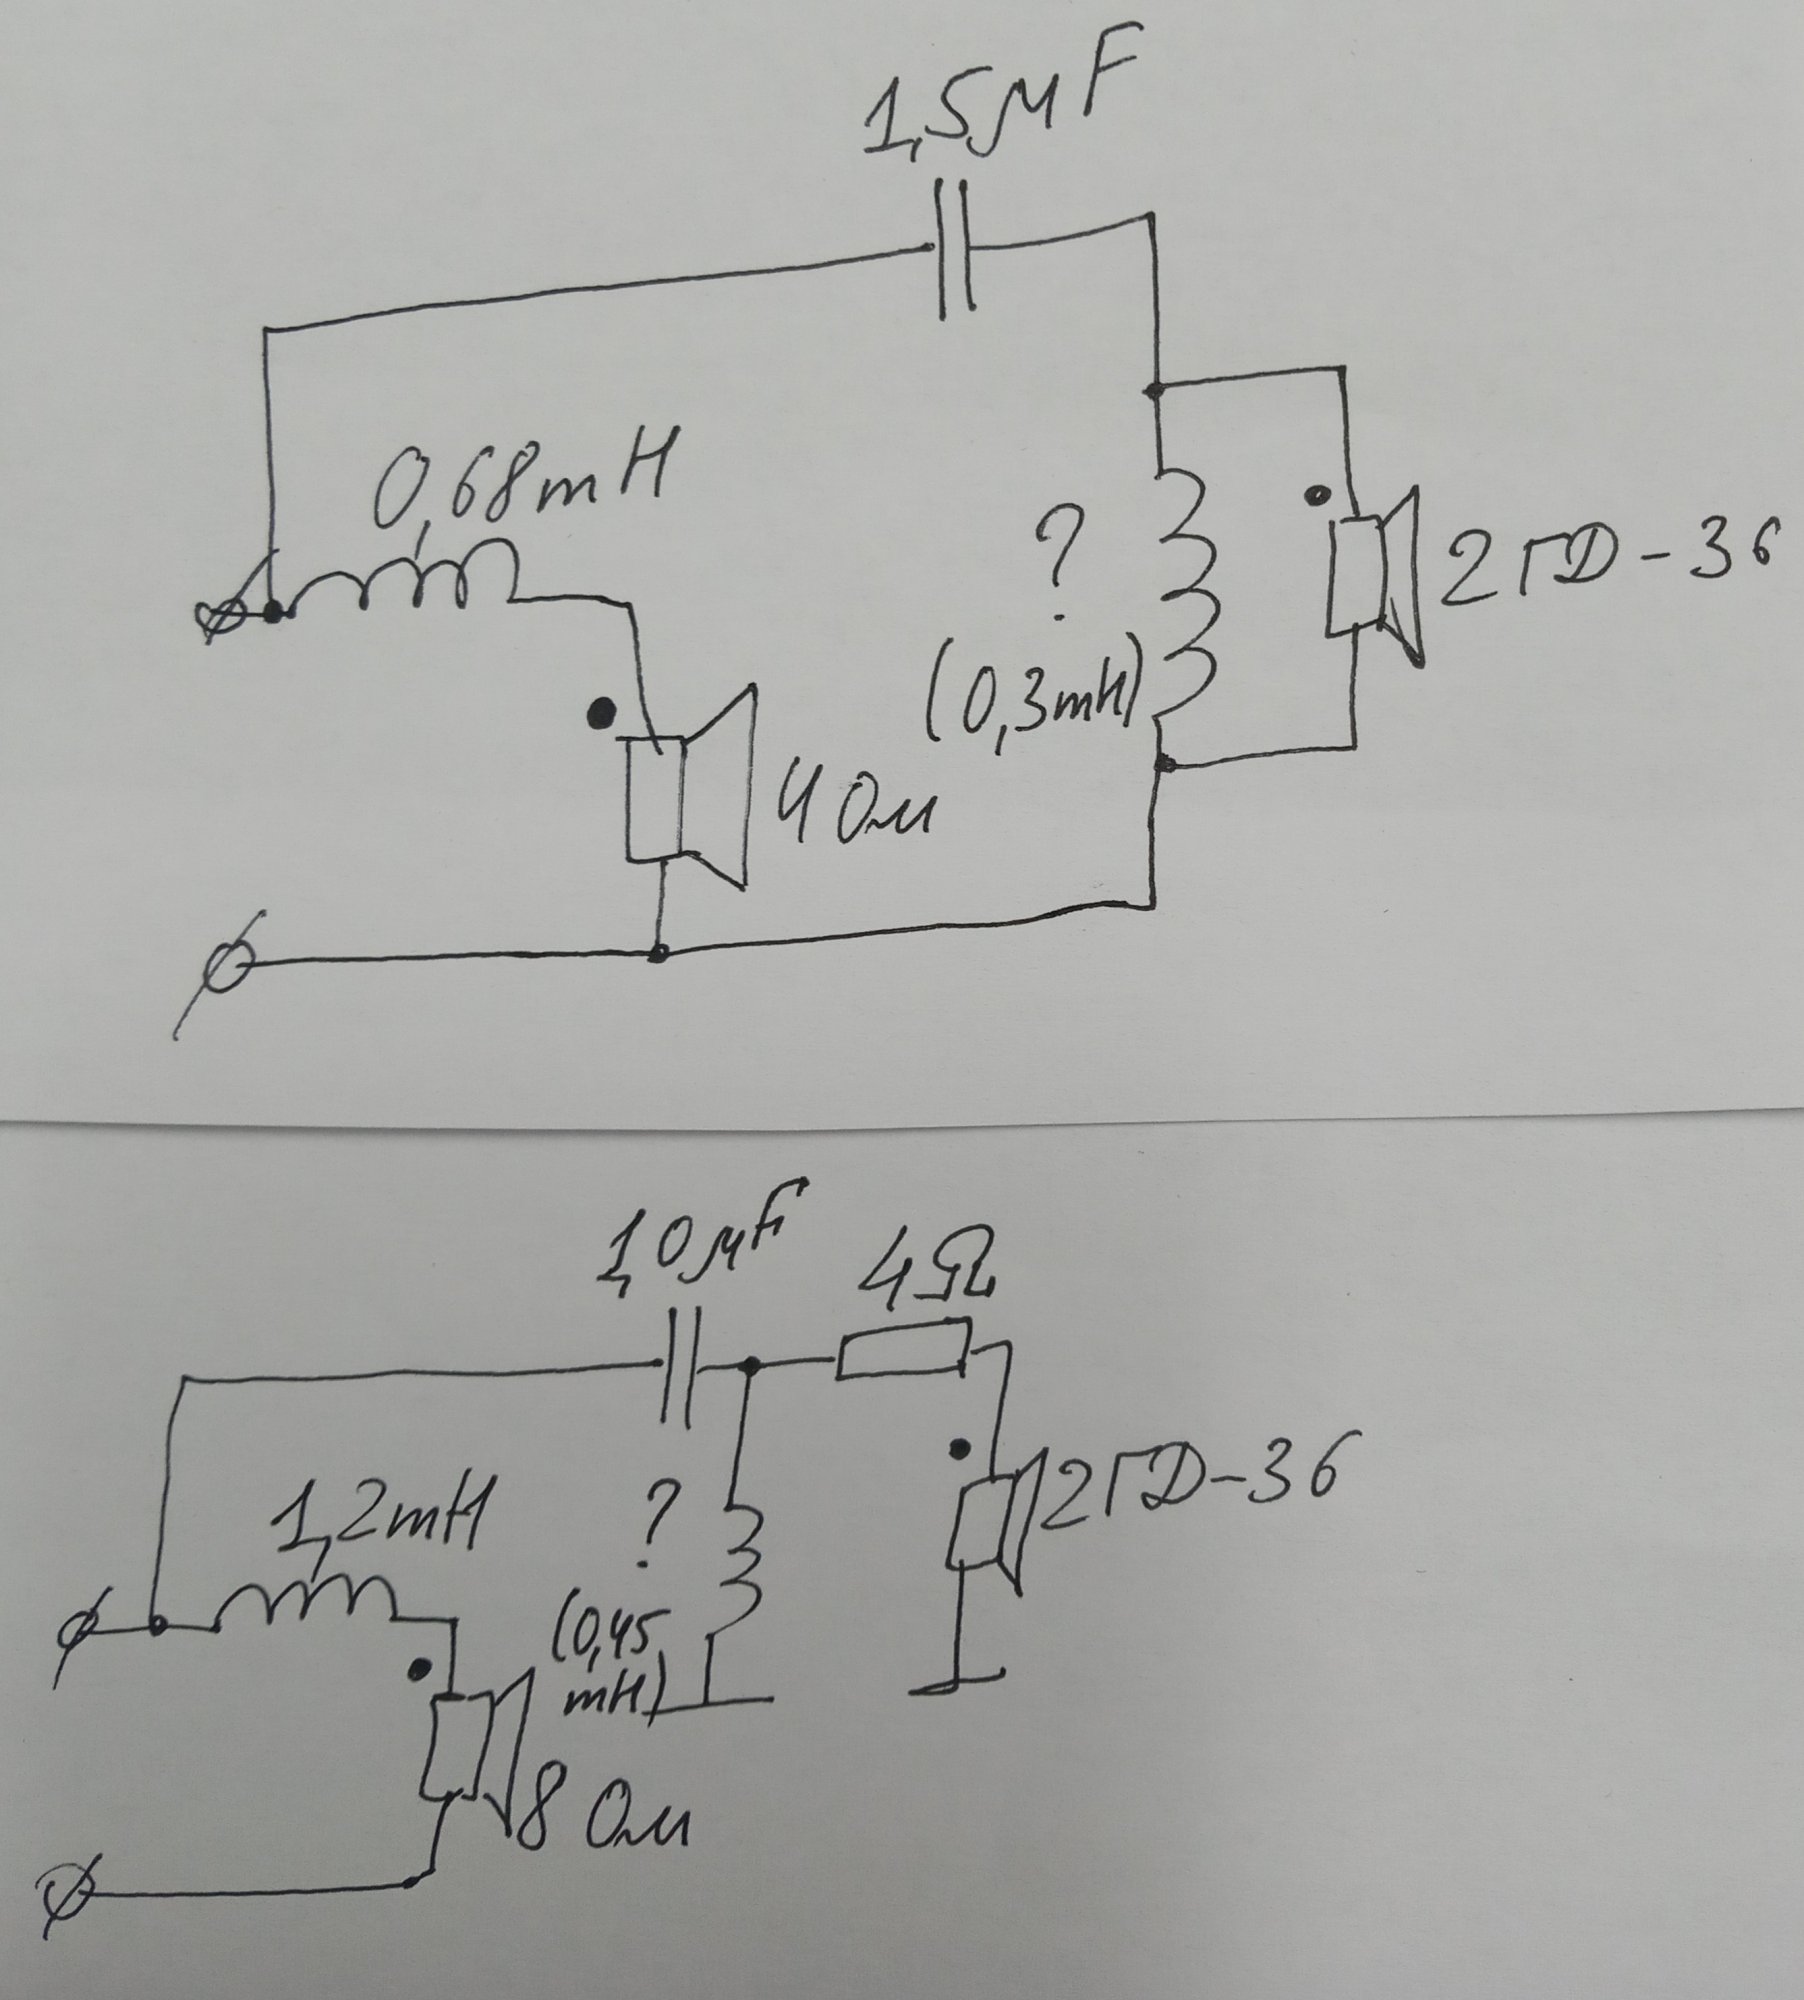 1,5μF
0,68mH
?
2ГД-36
(0,3mH)
4 Ом
1,0μF
4Ω
2ГД-36
1,2mH
?
(0,45
mH)
8 Ом